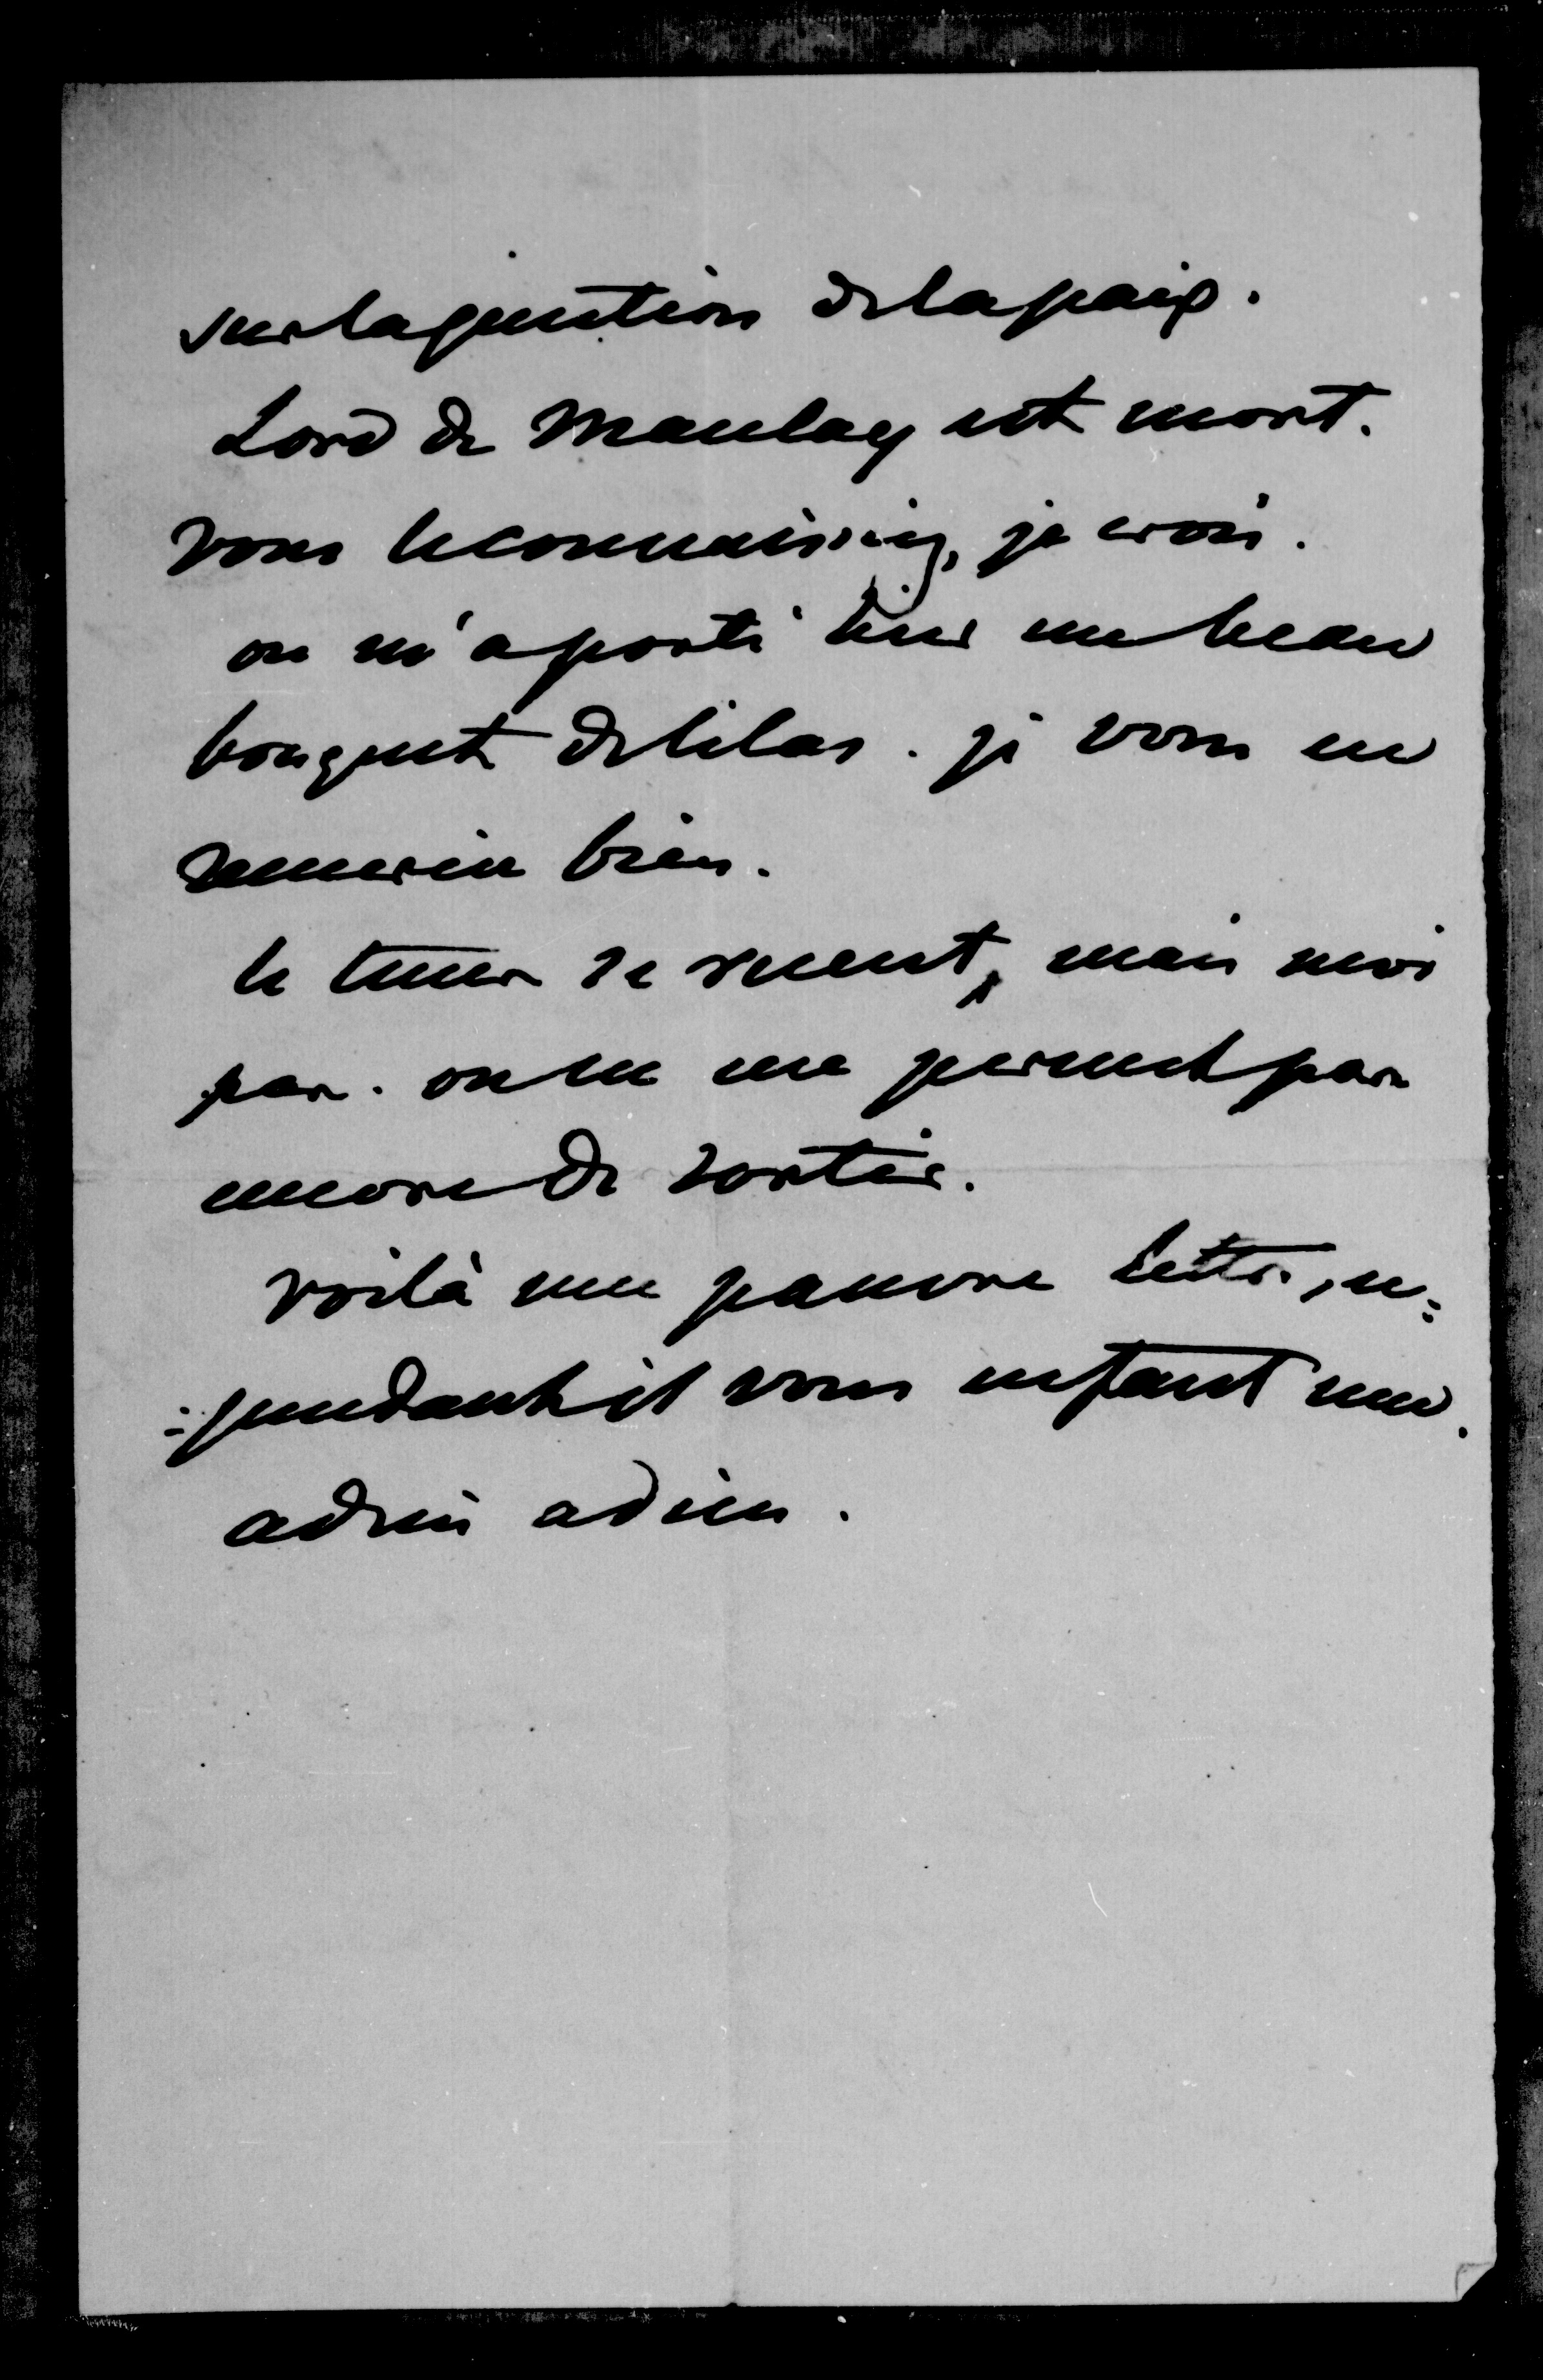 sur la question de la paix.
Lord de Maulay est mort.
vous le connaissiez, je crois.
on m'a porté hier un beau
bouquet de lilas. je vous en
remercie bien.
le tems se remet, mais moi
pas. on ne me permet pas
encore de sortir.
voilà une pauvre lettre, ce=
=pendant il vous en faut une.
adieu adieu.